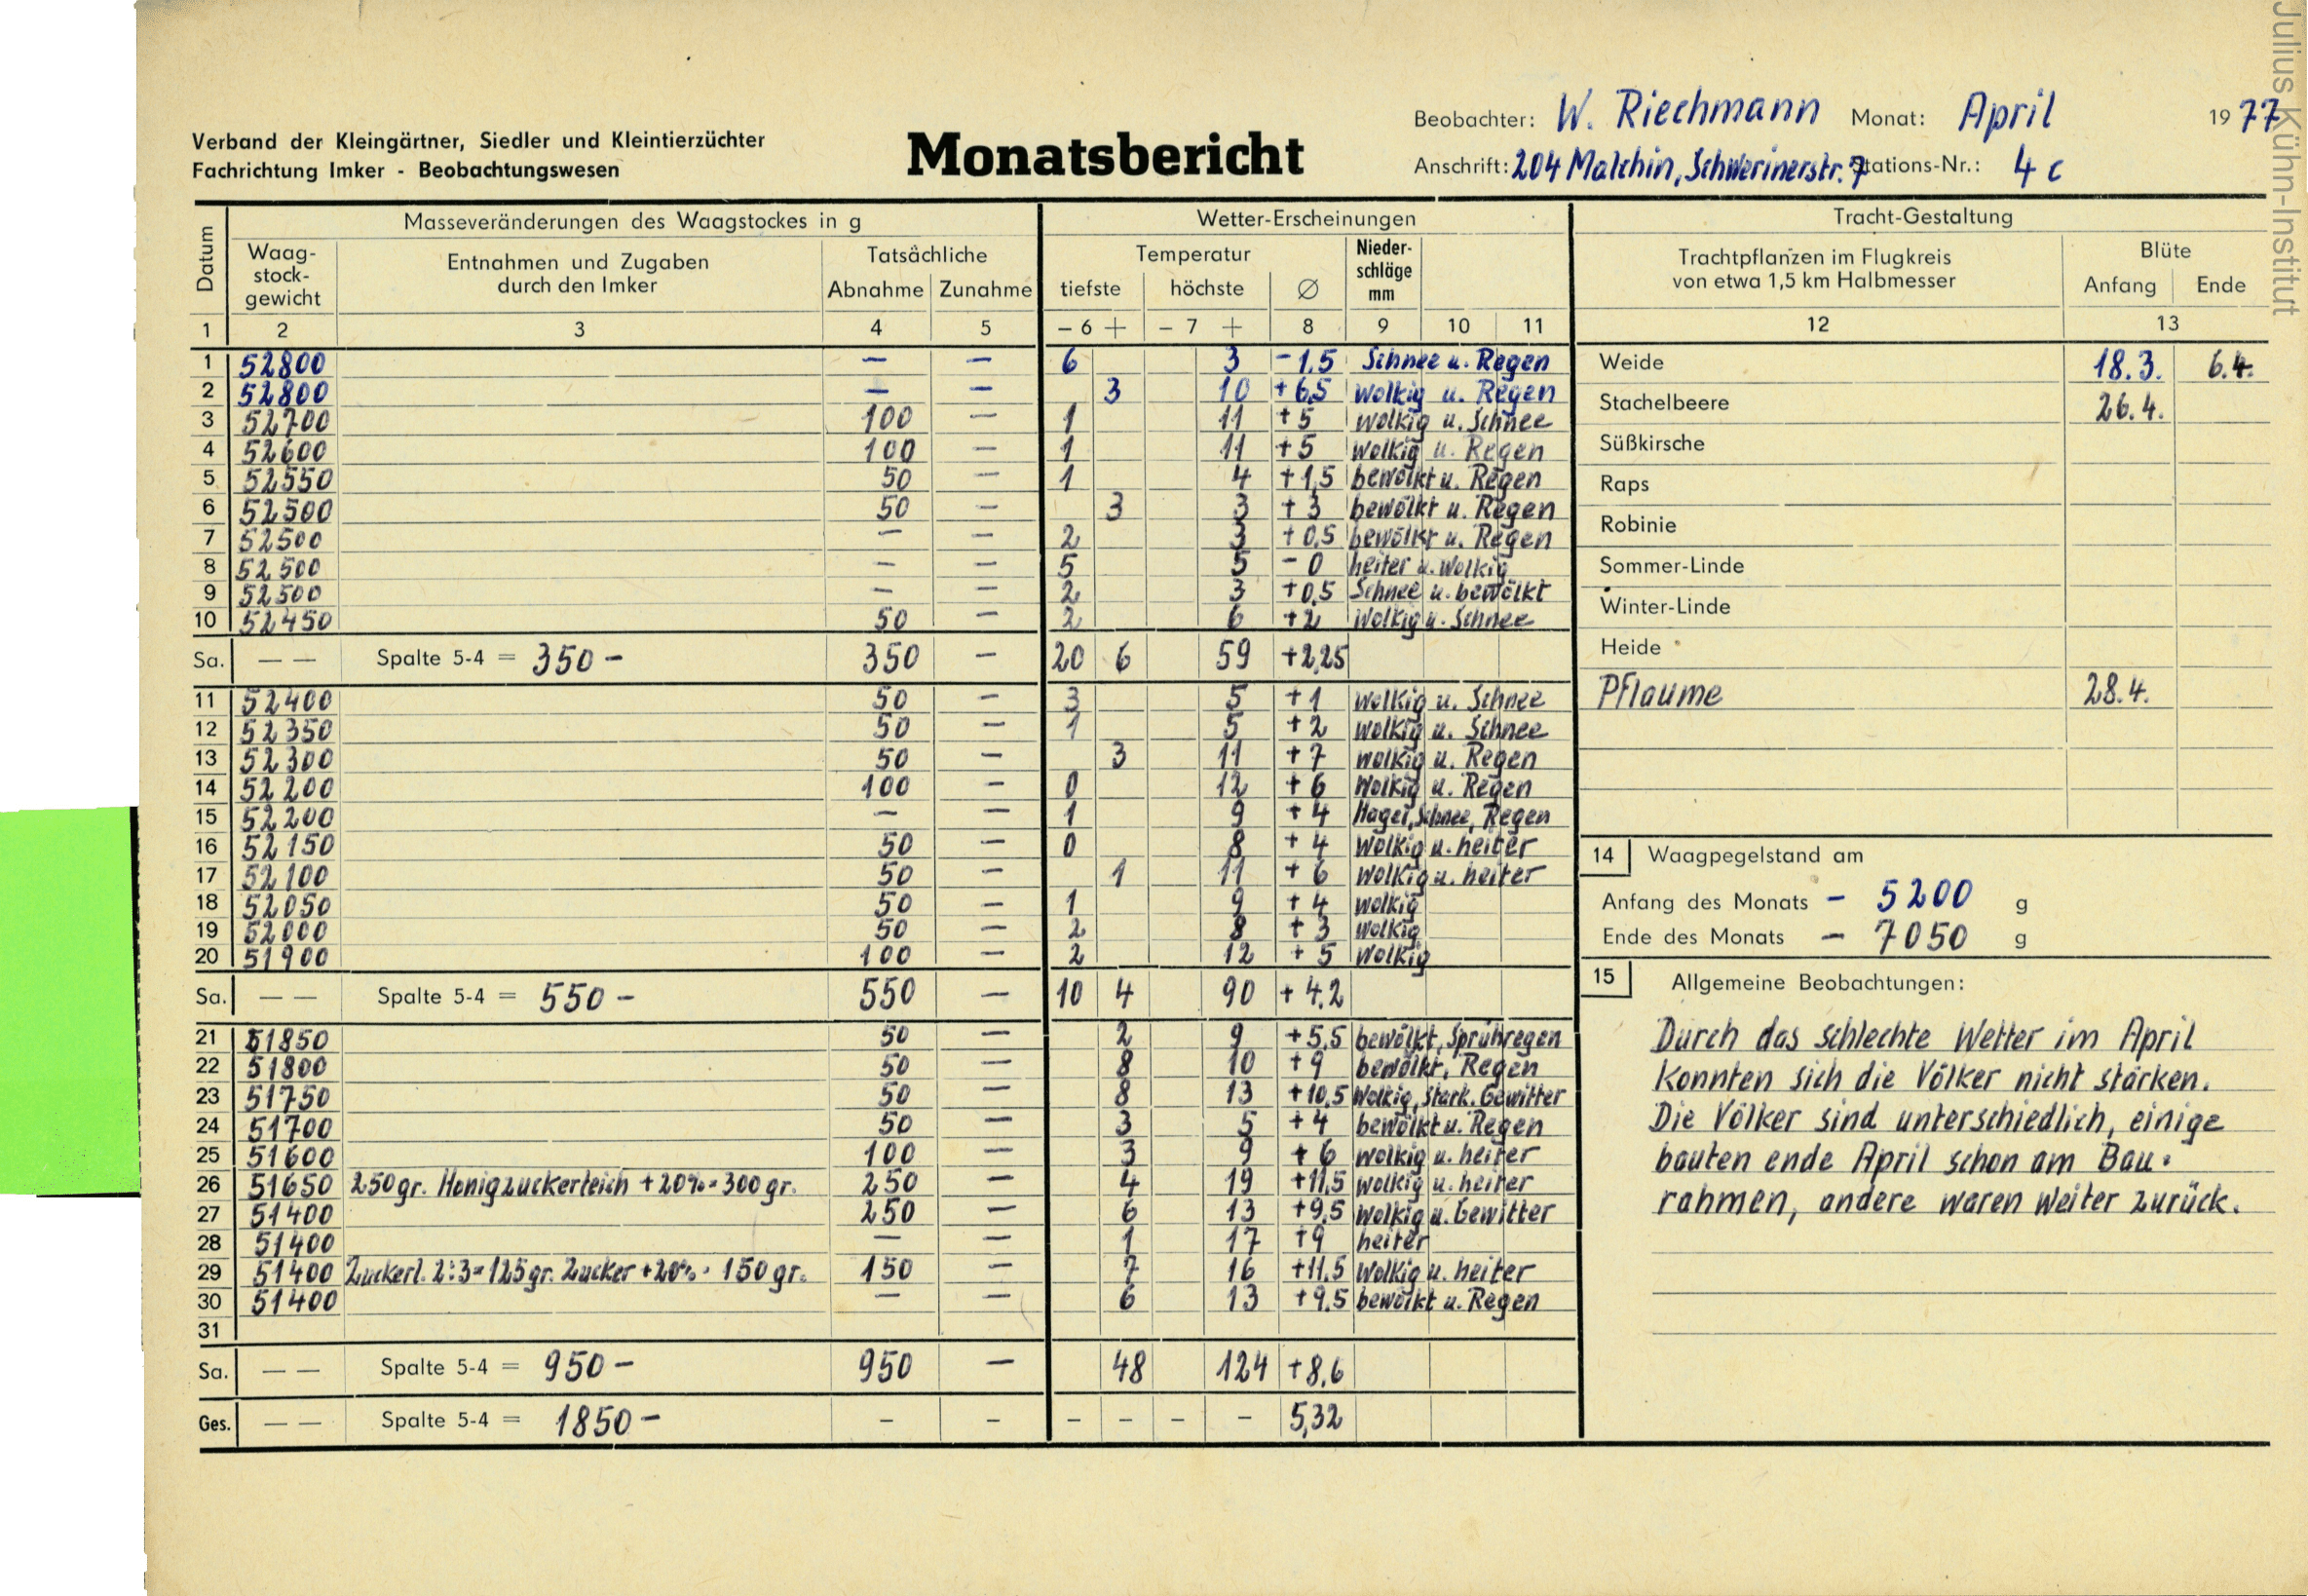 Julius Kühn-Institut
Verband der Kleingärtner, Siedler und Kleintierzüchter
Fachrichtung Imker - Beobachtungswesen
Monatsbericht
Beobachter: W. Riechmann Monat: April 1977
Anschrift: 204 Malchin, Schwerinerstr. 7 Stations-Nr.: 4 c
Datum
Masseveränderungen des Waagstockes in g
Waag-
stock-
gewicht
Entnahmen und Zugaben
durch den Imker
Tatsächliche
Abnahme Zunahme
Wetter-Erscheinungen
Temperatur
tiefste höchste ∅
Nieder-
schläge
mm
1 2 3 4 5 – 6 + – 7 + 8 9 10 11
1 52800 — — 6 3 –1,5 Schnee u. Regen
2 52800 — — 3 10 +6,5 wolkig u. Regen
3 52700 100 — 1 11 +5 wolkig u. Schnee
4 52600 100 — 1 11 +5 wolkig u. Regen
5 52550 50 — 1 4 +1,5 bewölkt u. Regen
6 52500 50 — 3 3 +3 bewölkt u. Regen
7 52500 — — 2 3 +0,5 bewölkt u. Regen
8 52500 — — 5 5 –0 heiter u. wolkig
9 52500 — — 2 3 +0,5 Schnee u. bewölkt
10 52450 50 — 2 6 +2 Wolkig u. Schnee
Sa. — — Spalte 5-4 = 350 – 350 — 20 6 59 +2,25
11 52400 50 — 3 5 +1 wolkig u. Schnee
12 52350 50 — 1 5 +2 wolkig u. Schnee
13 52300 50 — 3 11 +7 wolkig u. Regen
14 52200 100 — 0 12 +6 Wolkig u. Regen
15 52200 — — 1 9 +4 Hagel, Schnee, Regen
16 52150 50 — 0 8 +4 Wolkig u. heiter
17 52100 50 — 1 11 +6 wolkig u. heiter
18 52050 50 — 1 9 +4 wolkig
19 52000 50 — 2 8 +3 wolkig
20 51900 100 — 2 12 +5 Wolkig
Sa. — — Spalte 5-4 = 550 – 550 — 10 4 90 +4,2
21 51850 50 — 2 9 +5,5 bewölkt, Sprühregen
22 51800 50 — 8 10 +9 bewölkt, Regen
23 51750 50 — 8 13 +10,5 Wolkig, Stark. Gewitter
24 51700 50 — 3 5 +4 bewölkt u. Regen
25 51600 100 — 3 9 +6 wolkig u. heiter
26 51650 250gr. Honigzuckerteich +20%=300gr. 250 — 4 19 +11,5 wolkig u. heiter
27 51400 250 — 6 13 +9,5 wolkig u. Gewitter
28 51400 — — 1 17 +9 heiter
29 51400 Zuckerl. 2:3=125gr. Zucker +20%= 150gr. 150 — 7 16 +11,5 Wolkig u. heiter
30 51400 — — 6 13 +9,5 bewölkt u. Regen
31
Sa. — — Spalte 5-4 = 950 – 950 — 48 124 +8,6
Ges. — — Spalte 5-4 = 1850 – – – – – – – 5,32
Tracht-Gestaltung
Trachtpflanzen im Flugkreis
von etwa 1,5 km Halbmesser
Blüte
Anfang Ende
12 13
Weide 18.3. 6.4.
Stachelbeere 26.4.
Süßkirsche
Raps
Robinie
Sommer-Linde
Winter-Linde
Heide
Pflaume 28.4.
14 Waagpegelstand am
Anfang des Monats – 5200 g
Ende des Monats – 7050 g
15 Allgemeine Beobachtungen:
Durch das schlechte Wetter im April
konnten sich die Völker nicht stärken.
Die Völker sind unterschiedlich, einige
bauten ende April schon am Bau-
rahmen, andere waren weiter zurück.